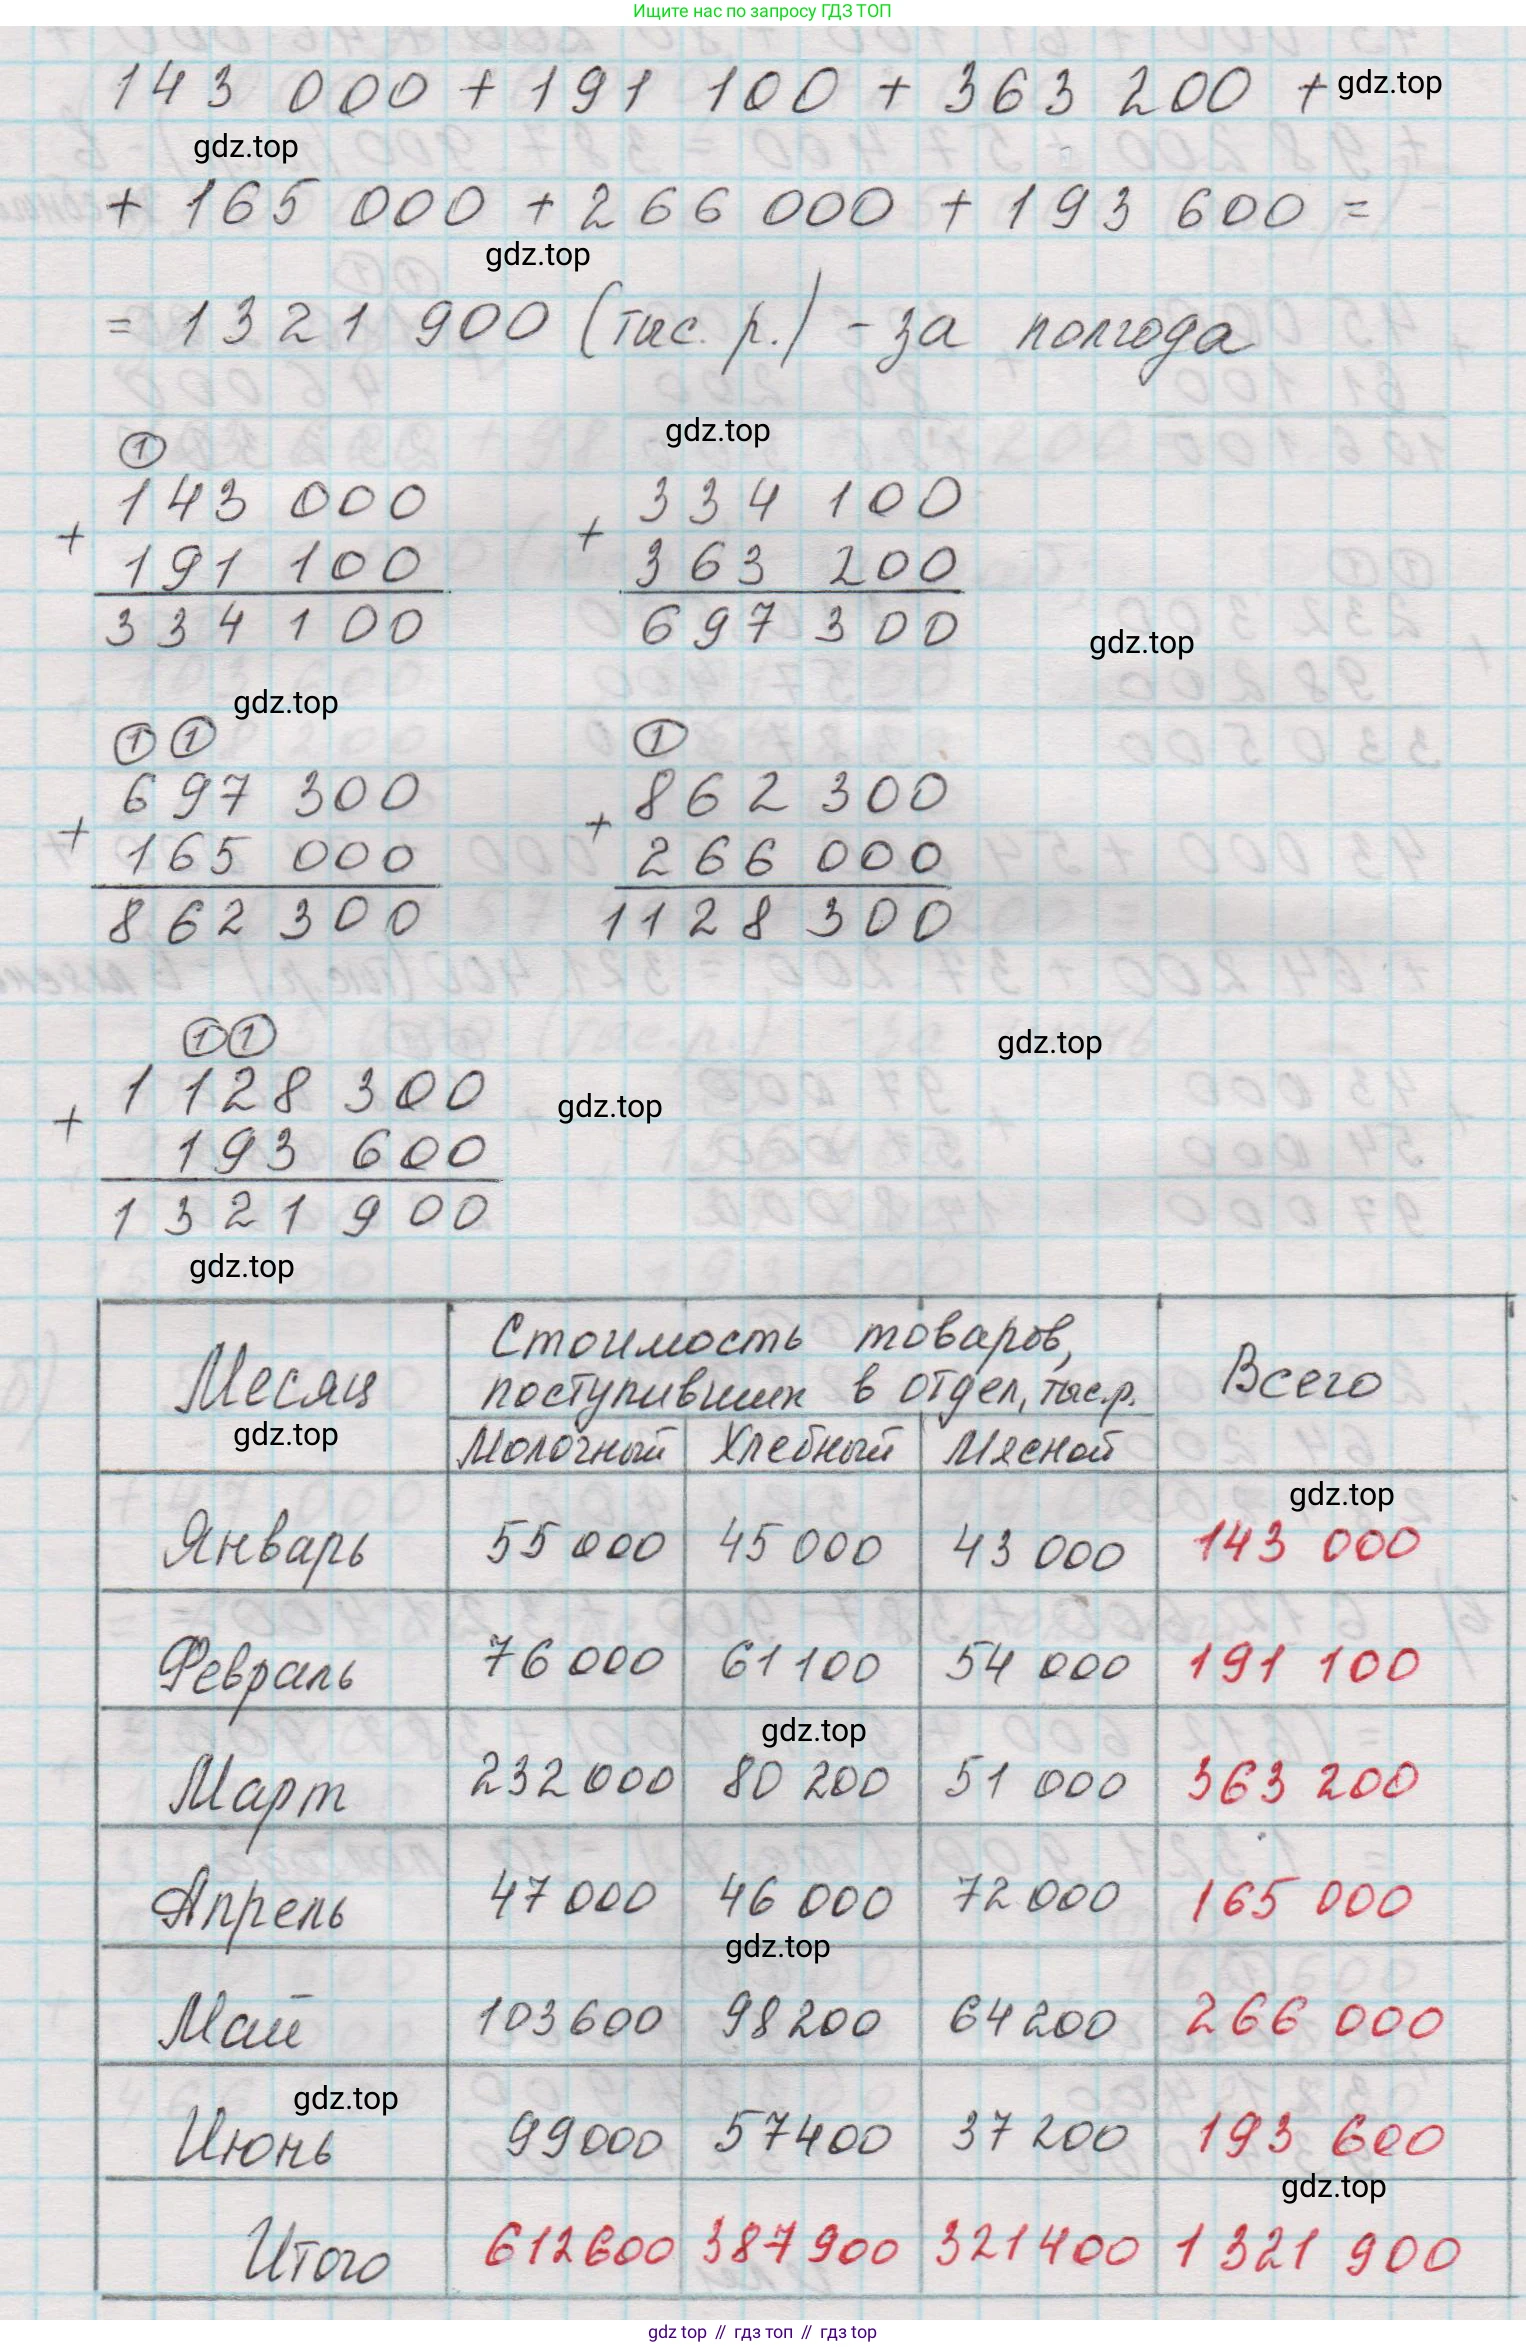 Ищите нас по запросу ГДЗ ТОП
143 000 + 191 100 + 363 200 +
gdz.top
gdz.top
+ 165 000 + 266 000 + 193 600 =
gdz.top
= 1321 900 (тыс. р.) - за полгода
gdz.top
①
143 000
+
191 100
334 100
334 100
+
363 200
697 300
gdz.top
gdz.top
① ①
697 300
+
165 000
862 300
①
862 300
+
266 000
1128 300
gdz.top
① ①
1 128 300
+
193 600
1 321 900
gdz.top
gdz.top
Месяц
Стоимость товаров,
поступивших в отдел, тыс.р.
Всего
gdz.top
Молочный Хлебный Мясной
gdz.top
Январь 55 000 45 000 43 000 143 000
Февраль 76 000 61 100 54 000 191 100
gdz.top
Март 232 000 80 200 51 000 363 200
Апрель 47 000 46 000 72 000 165 000
gdz.top
Май 103 600 98 200 64 200 266 000
gdz.top
Июнь 99 000 57 400 37 200 193 600
gdz.top
Итого 612 600 387 900 321 400 1 321 900
gdz top // гдз топ // gdz top